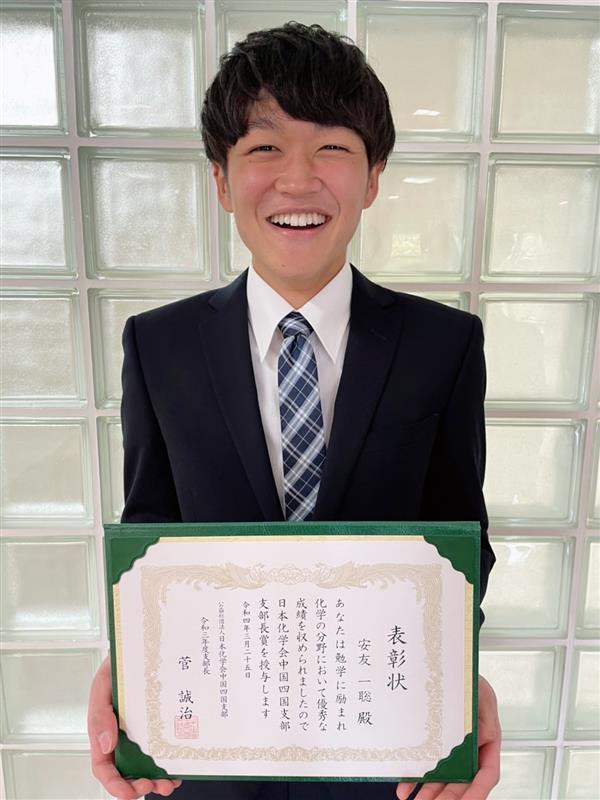 表彰状
安友 一聡 殿
あなたは勉学に励まれ
化学の分野において優秀な
成績を収められましたので
日本化学会中国四国支部
支部長賞を授与します
令和四年三月二十五日
公益社団法人日本化学会中国四国支部
令和三年度支部長
菅 誠治